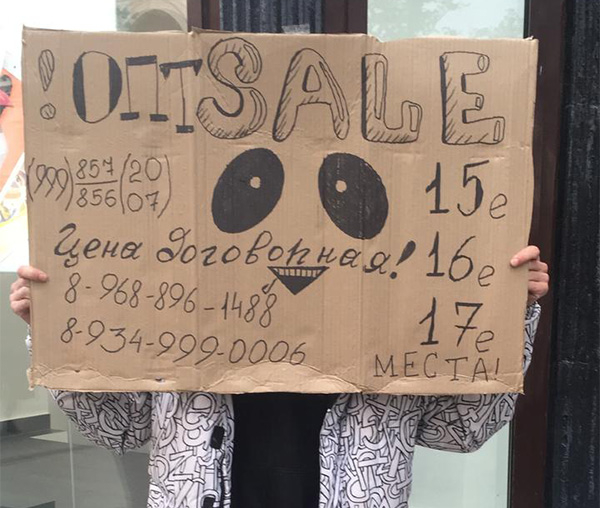 !ОПТSALE
(999) 857 (20
856 (07)
15е
Цена договорная!
16е
8-968-896-1488
17е
8-934-999-0006
МЕСТА!